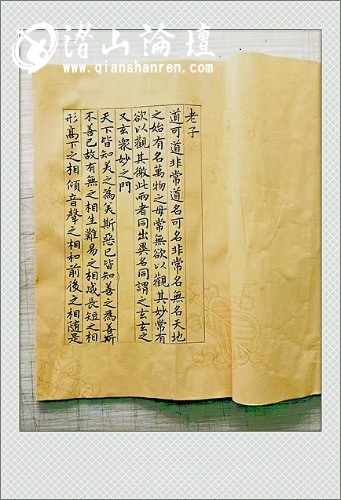 潜山論壇
www.qianshanren.com
老子
道可道非常道名可名非常名無名天地
之始有名萬物之母常無欲以觀其妙常有
欲以觀其徼此兩者同出異名同謂之玄玄之
又玄衆妙之門
天下皆知美之為美斯惡已皆知善之為善斯
不善已故有無之相生難易之相成長短之相
形高下之相傾音聲之相和前後之相随是